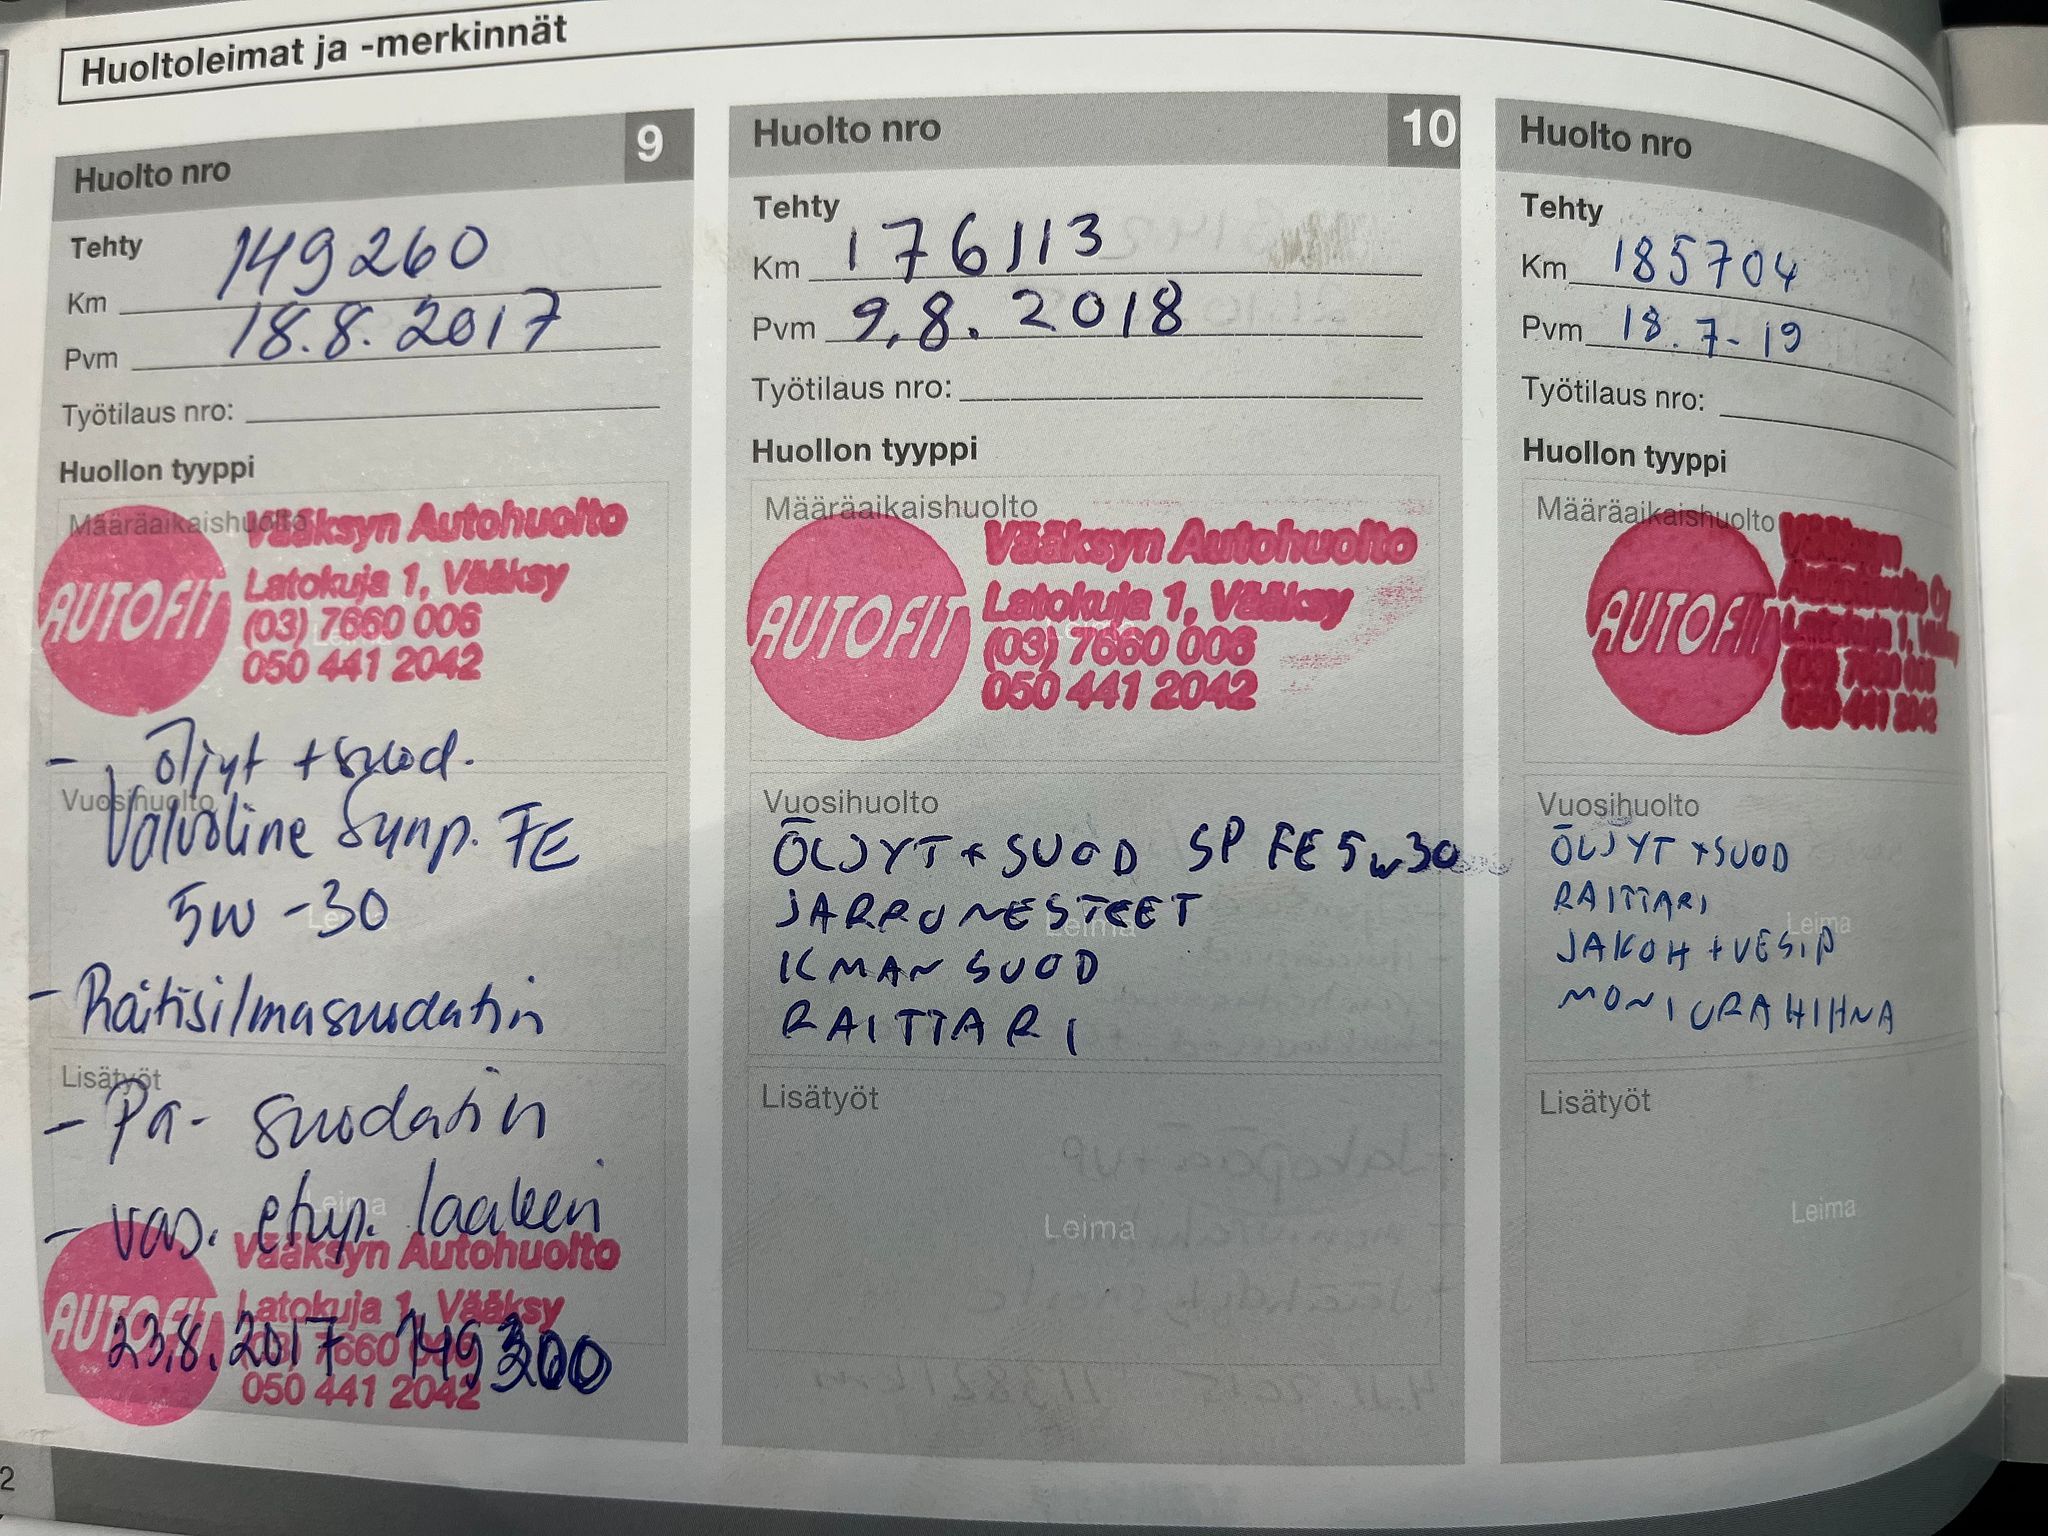 Huoltoleimat ja -merkinnät
Huolto nro 9
Tehty
Km 149260
Pvm 18.8.2017
Työtilaus nro:
Huollon tyyppi
Määräaikaishuolto
AUTOFIT
Vääksyn Autohuolto
Latokuja 1, Vääksy
(03) 7660 006
050 441 2042
- öljyt + suod.
Vuosihuolto
Valvoline Synp. FE
5W-30
Leima
- Raitisilmasuodatin
Lisätyöt
- Pa- suodatin
- vas. etup. laakeri
Leima
AUTOFIT
Vääksyn Autohuolto
Latokuja 1, Vääksy
(03) 7660 006
050 441 2042
23.8.2017 149300
2
Huolto nro 10
Tehty
Km 176113
Pvm 9.8.2018
Työtilaus nro:
Huollon tyyppi
Määräaikaishuolto
AUTOFIT
Vääksyn Autohuolto
Latokuja 1, Vääksy
(03) 7660 006
050 441 2042
Vuosihuolto
ÖLJYT + SUOD SP FE 5W30
JARRUNESTEET
Leima
ILMANSUOD
RAITTARI
Lisätyöt
Leima
Huolto nro
Tehty
Km 185704
Pvm 18.7-19
Työtilaus nro:
Huollon tyyppi
Määräaikaishuolto
AUTOFIT
Vääksyn
Autohuolto Oy
Latokuja 1, Vääksy
(03) 7660 006
050 441 2042
Vuosihuolto
ÖLJYT + SUOD
RAITTARI
Leima
JAKOH + VESIP
MONIURAHIHNA
Lisätyöt
Leima